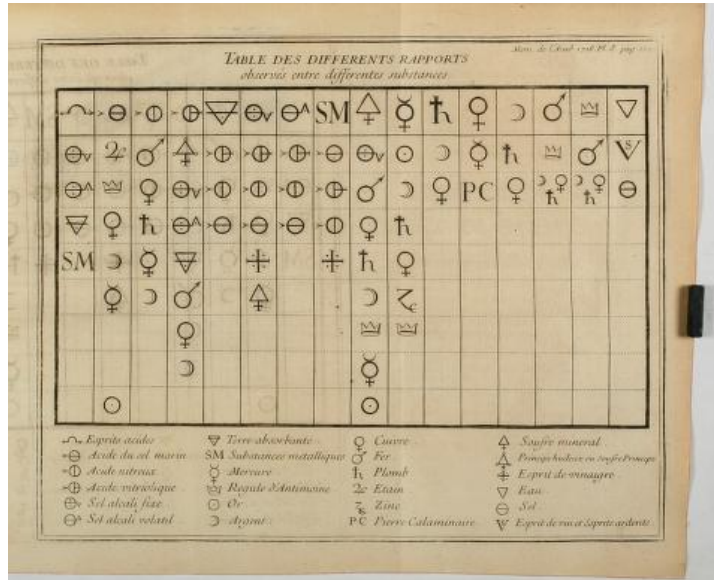 Mem. de l'Acad. 1718. Pl. 8. pag.
TABLE DES DIFFERENTS RAPPORTS
observés entre differentes substances.
SM
SM PC
Esprits acides.
Acide du sel marin.
Acide nitreux.
Acide vitriolique.
Sel alcali fixe.
Sel alcali volatil.
Terre absorbante.
SM Substances metalliques.
Mercure.
Regule d'Antimoine.
Or.
Argent.
Cuivre.
Fer.
Plomb.
Etain.
Zinc.
PC Pierre Calaminaire.
Soufre mineral.
Principe huileux ou Soufre Principe.
Esprit de vinaigre.
Eau.
Sel.
Esprit de vin et Esprits ardents.